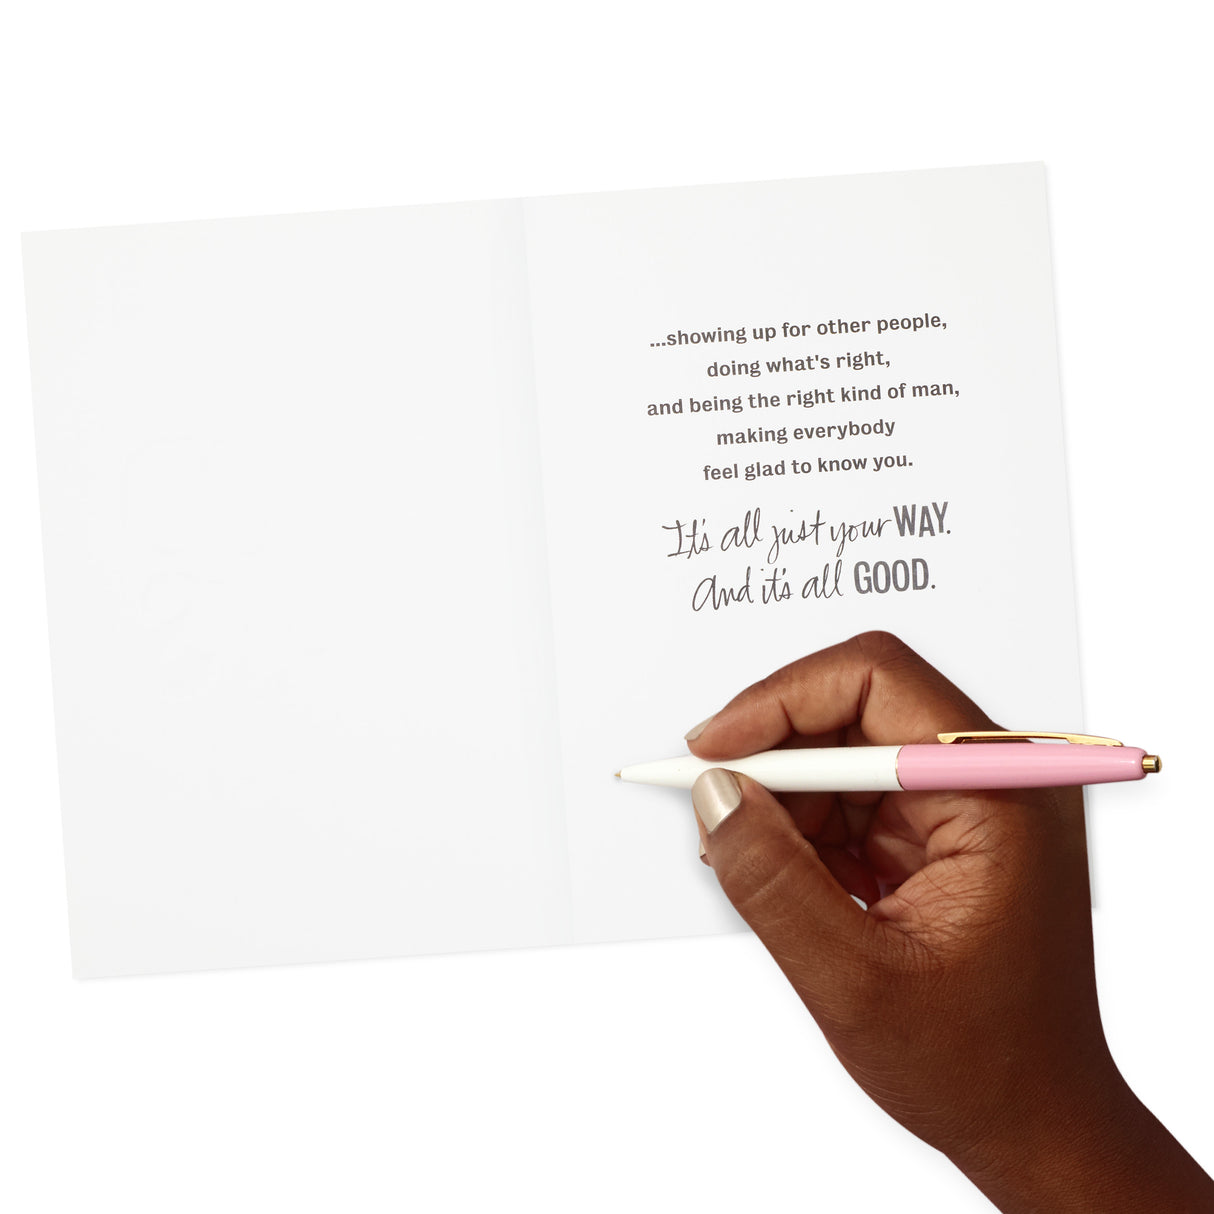 ...showing up for other people,
doing what's right,
and being the right kind of man,
making everybody
feel glad to know you.
It's all just your WAY.
And it's all GOOD.